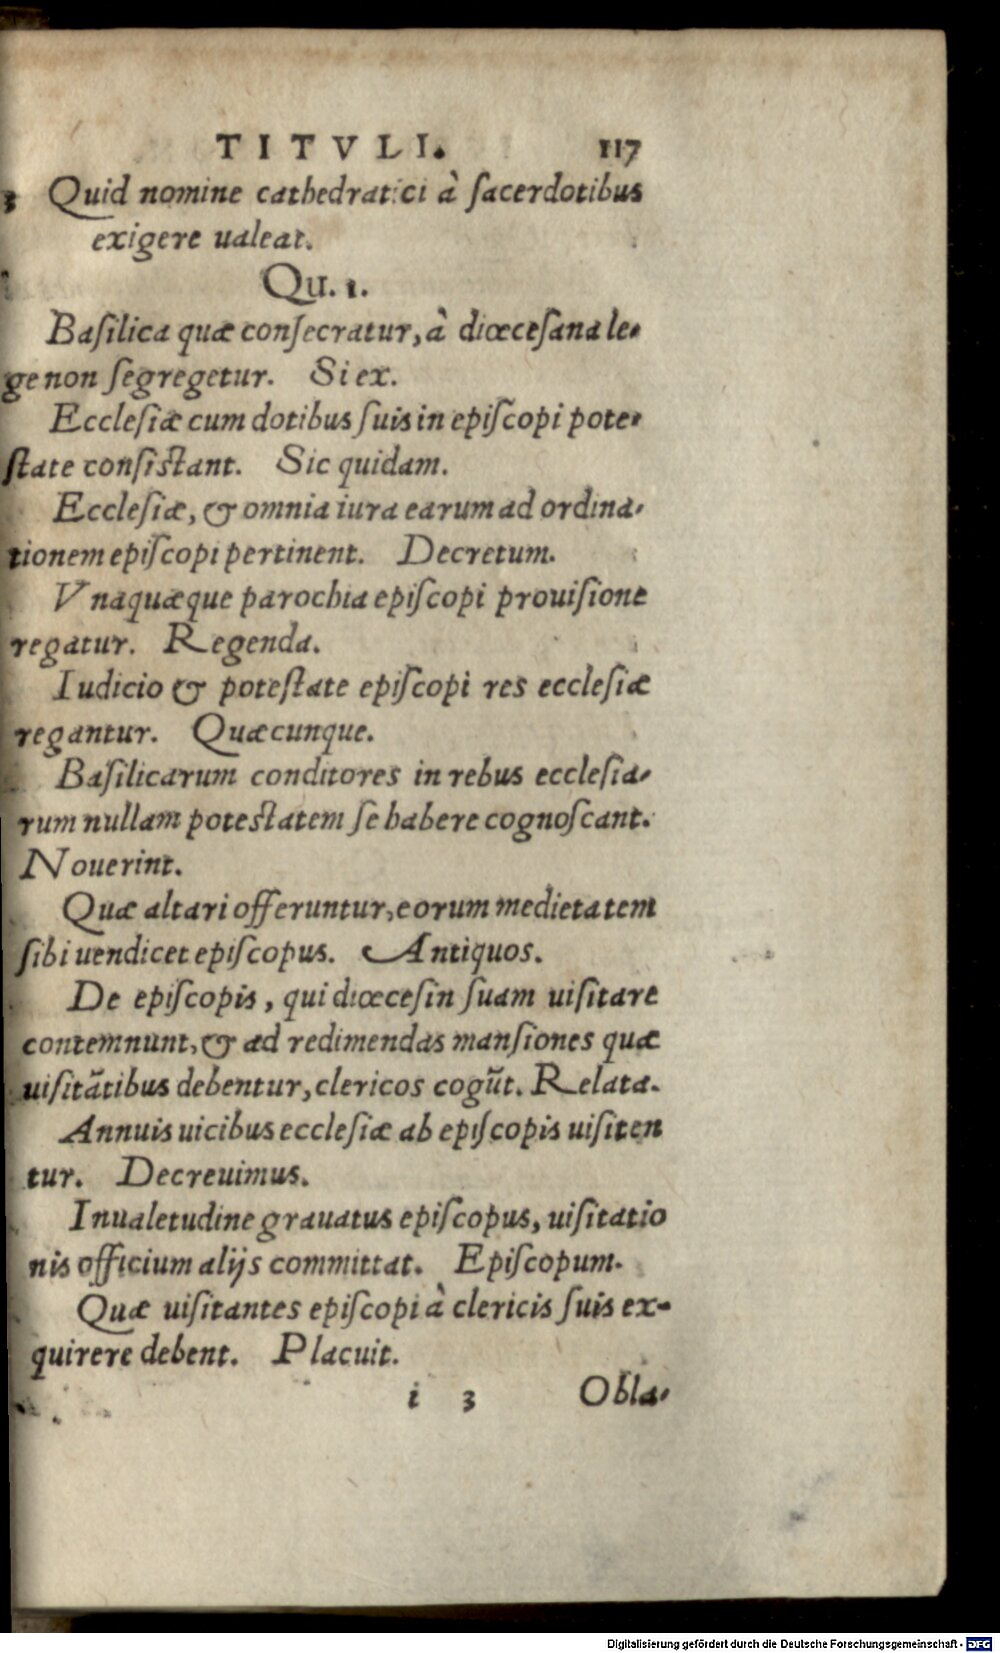 TITVLI. 117
3 Quid nomine cathedratici à ſacerdotibus
exigere ualeat.
Qu. 1.
Baſilica quæ conſecratur, à diœceſana le-
ge non ſegregetur. Si ex.
Eccleſiæ cum dotibus ſuis in epiſcopi pote-
ſtate conſiſtant. Sic quidam.
Eccleſiæ, & omnia iura earum ad ordina-
tionem epiſcopi pertinent. Decretum.
Vnaquæque parochia epiſcopi prouiſione
regatur. Regenda.
Iudicio & poteſtate epiſcopi res eccleſiæ
regantur. Quæcunque.
Baſilicarum conditores in rebus eccleſia-
rum nullam poteſtatem ſe habere cognoſcant.
Nouerint.
Quæ altari offeruntur, eorum medietatem
ſibi uendicet epiſcopus. Antiquos.
De epiſcopis, qui diœceſin ſuam uiſitare
contemnunt, & ad redimendas manſiones quæ
uiſitātibus debentur, clericos cogūt. Relata.
Annuis uicibus eccleſiæ ab epiſcopis uiſiten
tur. Decreuimus.
Inualetudine grauatus epiſcopus, uiſitatio
nis officium alijs committat. Epiſcopum.
Quæ uiſitantes epiſcopi à clericis ſuis ex-
quirere debent. Placuit.
i 3 Obla-
Digitalisierung gefördert durch die Deutsche Forschungsgemeinschaft - DFG